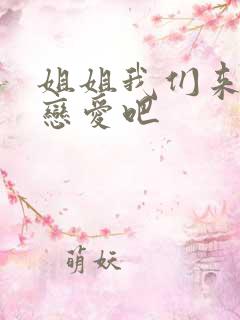 姐姐我们来
戀爱吧
萌妖